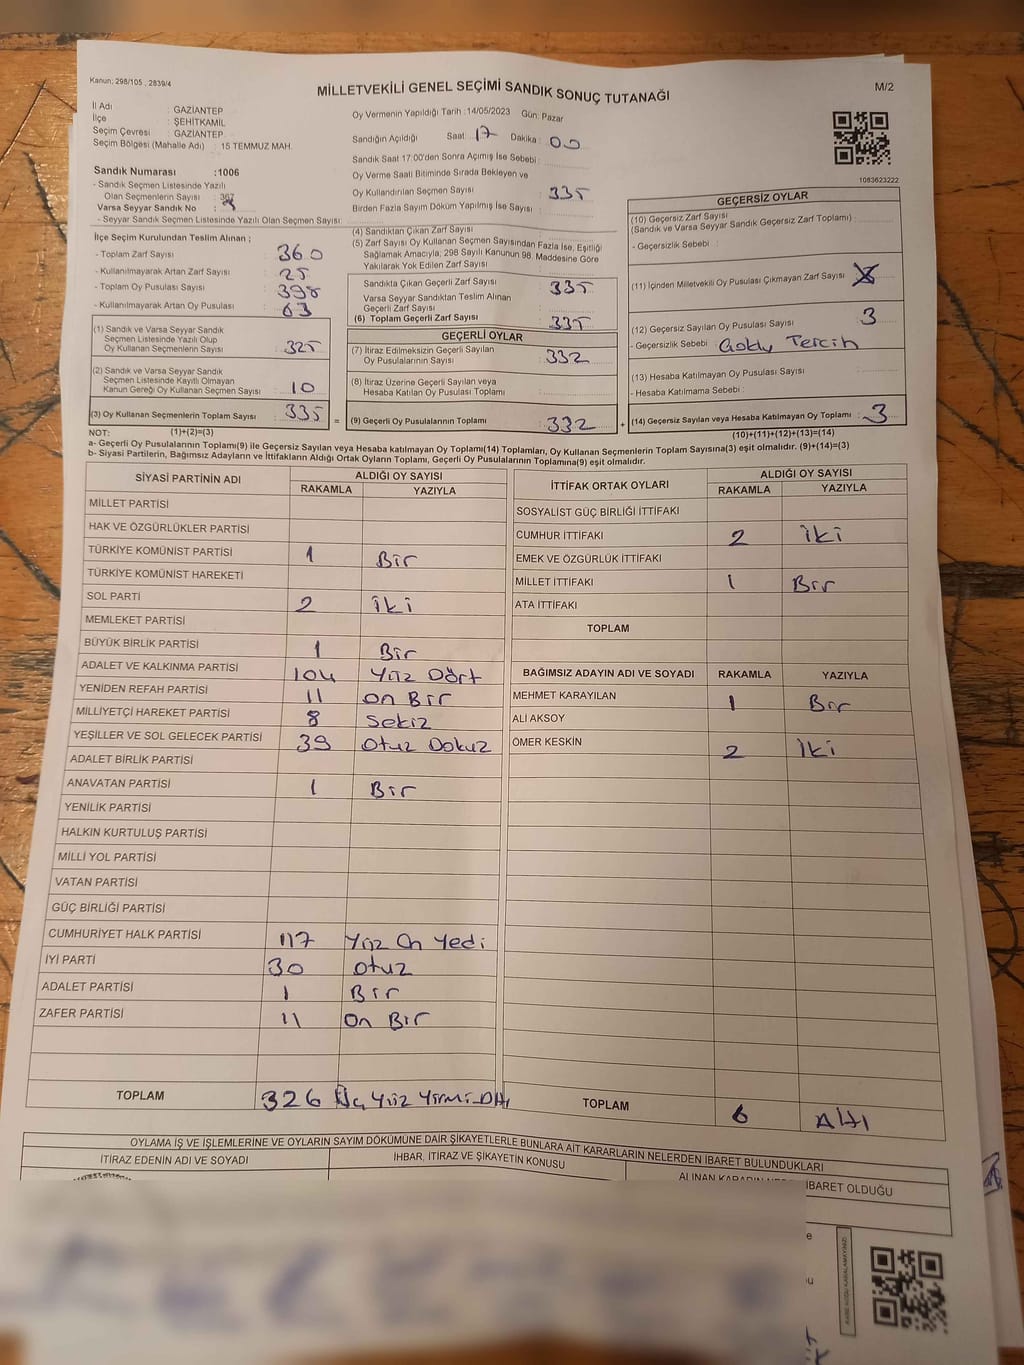 Kanun; 298/105 , 2839/4
MİLLETVEKİLİ GENEL SEÇİMİ SANDIK SONUÇ TUTANAĞI
M/2
İl Adı : GAZİANTEP
İlçe : ŞEHİTKAMİL
Seçim Çevresi : GAZİANTEP
Seçim Bölgesi (Mahalle Adı) : 15 TEMMUZ MAH.
Sandık Numarası :1006
- Sandık Seçmen Listesinde Yazılı
Olan Seçmenlerin Sayısı : 367
Varsa Seyyar Sandık No :
- Seyyar Sandık Seçmen Listesinde Yazılı Olan Seçmen Sayısı:
Oy Vermenin Yapıldığı Tarih :14/05/2023 Gün: Pazar
Sandığın Açıldığı Saat: 17 Dakika : 00
Sandık Saat 17:00'den Sonra Açımış İse Sebebi :
Oy Verme Saati Bitiminde Sırada Bekleyen ve
Oy Kullandırılan Seçmen Sayısı : 335
Birden Fazla Sayım Döküm Yapılmış İse Sayısı :
1083623222
İlçe Seçim Kurulundan Teslim Alınan ;
- Toplam Zarf Sayısı : 360
- Kullanılmayarak Artan Zarf Sayısı : 25
- Toplam Oy Pusulası Sayısı : 398
- Kullanılmayarak Artan Oy Pusulası : 63
(1) Sandık ve Varsa Seyyar Sandık
Seçmen Listesinde Yazılı Olup
Oy Kullanan Seçmenlerin Sayısı : 325
(2) Sandık ve Varsa Seyyar Sandık
Seçmen Listesinde Kayıtlı Olmayan
Kanun Gereği Oy Kullanan Seçmen Sayısı : 10
(3) Oy Kullanan Seçmenlerin Toplam Sayısı : 335
(1)+(2)=(3)
(4) Sandıktan Çıkan Zarf Sayısı
(5) Zarf Sayısı Oy Kullanan Seçmen Sayısından Fazla İse, Eşitliği
Sağlamak Amacıyla, 298 Sayılı Kanunun 98. Maddesine Göre
Yakılarak Yok Edilen Zarf Sayısı :
Sandıkta Çıkan Geçerli Zarf Sayısı : 335
Varsa Seyyar Sandıktan Teslim Alınan
Geçerli Zarf Sayısı :
(6) Toplam Geçerli Zarf Sayısı : 335
GEÇERLİ OYLAR
(7) İtiraz Edilmeksizin Geçerli Sayılan
Oy Pusulalarının Sayısı : 332
(8) İtiraz Üzerine Geçerli Sayılan veya
Hesaba Katılan Oy Pusulası Toplamı :
= (9) Geçerli Oy Pusulalarının Toplamı : 332
GEÇERSİZ OYLAR
(10) Geçersiz Zarf Sayısı
(Sandık ve Varsa Seyyar Sandık Geçersiz Zarf Toplamı) :
- Geçersizlik Sebebi :
(11) İçinden Milletvekili Oy Pusulası Çıkmayan Zarf Sayısı :
(12) Geçersiz Sayılan Oy Pusulası Sayısı : 3
- Geçersizlik Sebebi : Çoklu Tercih
(13) Hesaba Katılmayan Oy Pusulası Sayısı :
- Hesaba Katılmama Sebebi :
+ (14) Geçersiz Sayılan veya Hesaba Katılmayan Oy Toplamı : 3
(10)+(11)+(12)+(13)=(14)
NOT:
a- Geçerli Oy Pusulalarının Toplamı(9) ile Geçersiz Sayılan veya Hesaba katılmayan Oy Toplamı(14) Toplamları, Oy Kullanan Seçmenlerin Toplam Sayısına(3) eşit olmalıdır. (9)+(14)=(3)
b- Siyasi Partilerin, Bağımsız Adayların ve İttifakların Aldığı Ortak Oyların Toplamı, Geçerli Oy Pusulalarının Toplamına(9) eşit olmalıdır.
SİYASİ PARTİNİN ADI ALDIĞI OY SAYISI
RAKAMLA YAZIYLA
MİLLET PARTİSİ
HAK VE ÖZGÜRLÜKLER PARTİSİ
TÜRKİYE KOMÜNİST PARTİSİ 1 Bir
TÜRKİYE KOMÜNİST HAREKETİ
SOL PARTİ 2 İki
MEMLEKET PARTİSİ
BÜYÜK BİRLİK PARTİSİ 1 Bir
ADALET VE KALKINMA PARTİSİ 104 Yüz Dört
YENİDEN REFAH PARTİSİ 11 On Bir
MİLLİYETÇİ HAREKET PARTİSİ 8 Sekiz
YEŞİLLER VE SOL GELECEK PARTİSİ 39 Otuz Dokuz
ADALET BİRLİK PARTİSİ
ANAVATAN PARTİSİ 1 Bir
YENİLİK PARTİSİ
HALKIN KURTULUŞ PARTİSİ
MİLLİ YOL PARTİSİ
VATAN PARTİSİ
GÜÇ BİRLİĞİ PARTİSİ
CUMHURİYET HALK PARTİSİ 117 Yüz On Yedi
İYİ PARTİ 30 Otuz
ADALET PARTİSİ 1 Bir
ZAFER PARTİSİ 11 On Bir
TOPLAM 326 Üç Yüz Yirmi Altı
İTTİFAK ORTAK OYLARI ALDIĞI OY SAYISI
RAKAMLA YAZIYLA
SOSYALİST GÜÇ BİRLİĞİ İTTİFAKI
CUMHUR İTTİFAKI 2 İki
EMEK VE ÖZGÜRLÜK İTTİFAKI
MİLLET İTTİFAKI 1 Bir
ATA İTTİFAKI
TOPLAM
BAĞIMSIZ ADAYIN ADI VE SOYADI RAKAMLA YAZIYLA
MEHMET KARAYILAN 1 Bir
ALİ AKSOY
ÖMER KESKİN 2 İki
TOPLAM 6 Altı
OYLAMA İŞ VE İŞLEMLERİNE VE OYLARIN SAYIM DÖKÜMÜNE DAİR ŞİKAYETLERLE BUNLARA AİT KARARLARIN NELERDEN İBARET BULUNDUKLARI
İTİRAZ EDENİN ADI VE SOYADI
İHBAR, İTİRAZ VE ŞİKAYETİN KONUSU
İBARET OLDUĞU